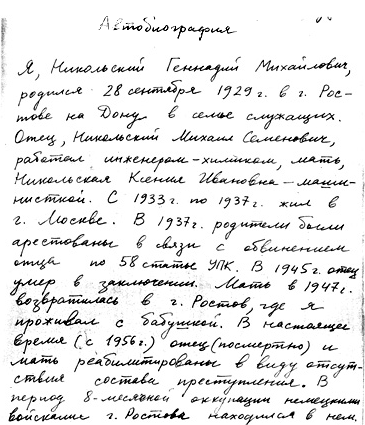 Автобиография
Я, Никольский Геннадий Михайлович,
родился 28 сентября 1929 г. в г. Рос-
тове на Дону в семье служащих.
Отец, Никольский Михаил Семенович,
работал инженером-химиком, мать,
Никольская Ксения Ивановна – маши-
нисткой. С 1933 г. по 1937 г. жил в
г. Москве. В 1937 г. родители были
арестованы в связи с обвинением
отца по 58 статье УПК. В 1945 г. отец
умер в заключении. Мать в 1947 г.
возвратилась в г. Ростов, где я
проживал с бабушкой. В настоящее
время (с 1956 г.) отец (посмертно) и
мать реабилитированы в виду отсут-
ствия состава преступления. В
период 8-месячной оккупации немецкими
войсками г. Ростова находился в нем.